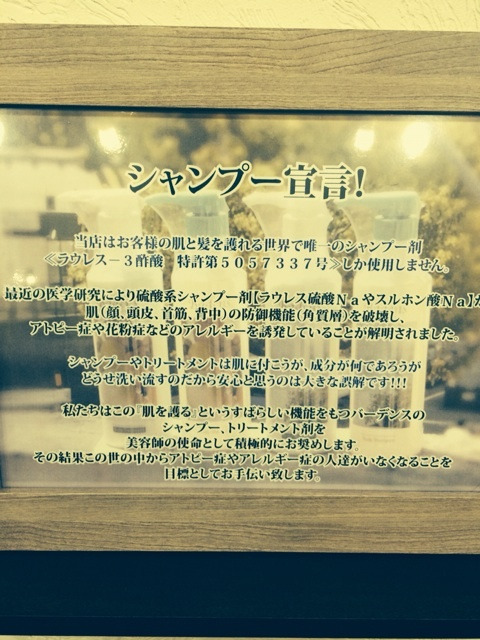 シャンプー宣言!
当店はお客様の肌と髪を護れる世界で唯一のシャンプー剤
≪ラウレス－３酢酸　特許第５０５７３３７号≫しか使用しません。
最近の医学研究により硫酸系シャンプー剤【ラウレス硫酸Ｎａやスルホン酸Ｎａ】が
肌(顔、頭皮、首筋、背中)の防御機能(角質層)を破壊し、
アトピー症や花粉症などのアレルギーを誘発していることが解明されました。
シャンプーやトリートメントは肌に付こうが、成分が何であろうが
どうせ洗い流すのだから安心と思うのは大きな誤解です!!!
私たちはこの「肌を護る」というすばらしい機能をもつバーデンスの
シャンプー、トリートメント剤を
美容師の使命として積極的にお奨めします。
その結果この世の中からアトピー症やアレルギー症の人達がいなくなることを
目標としてお手伝い致します。